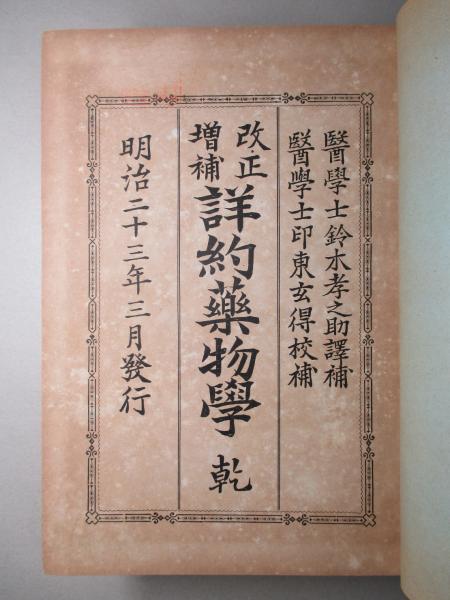 醫學士鈴木孝之助譯補
醫學士印東玄得校補
改正
増補
詳約藥物學 乾
明治二十三年三月發行